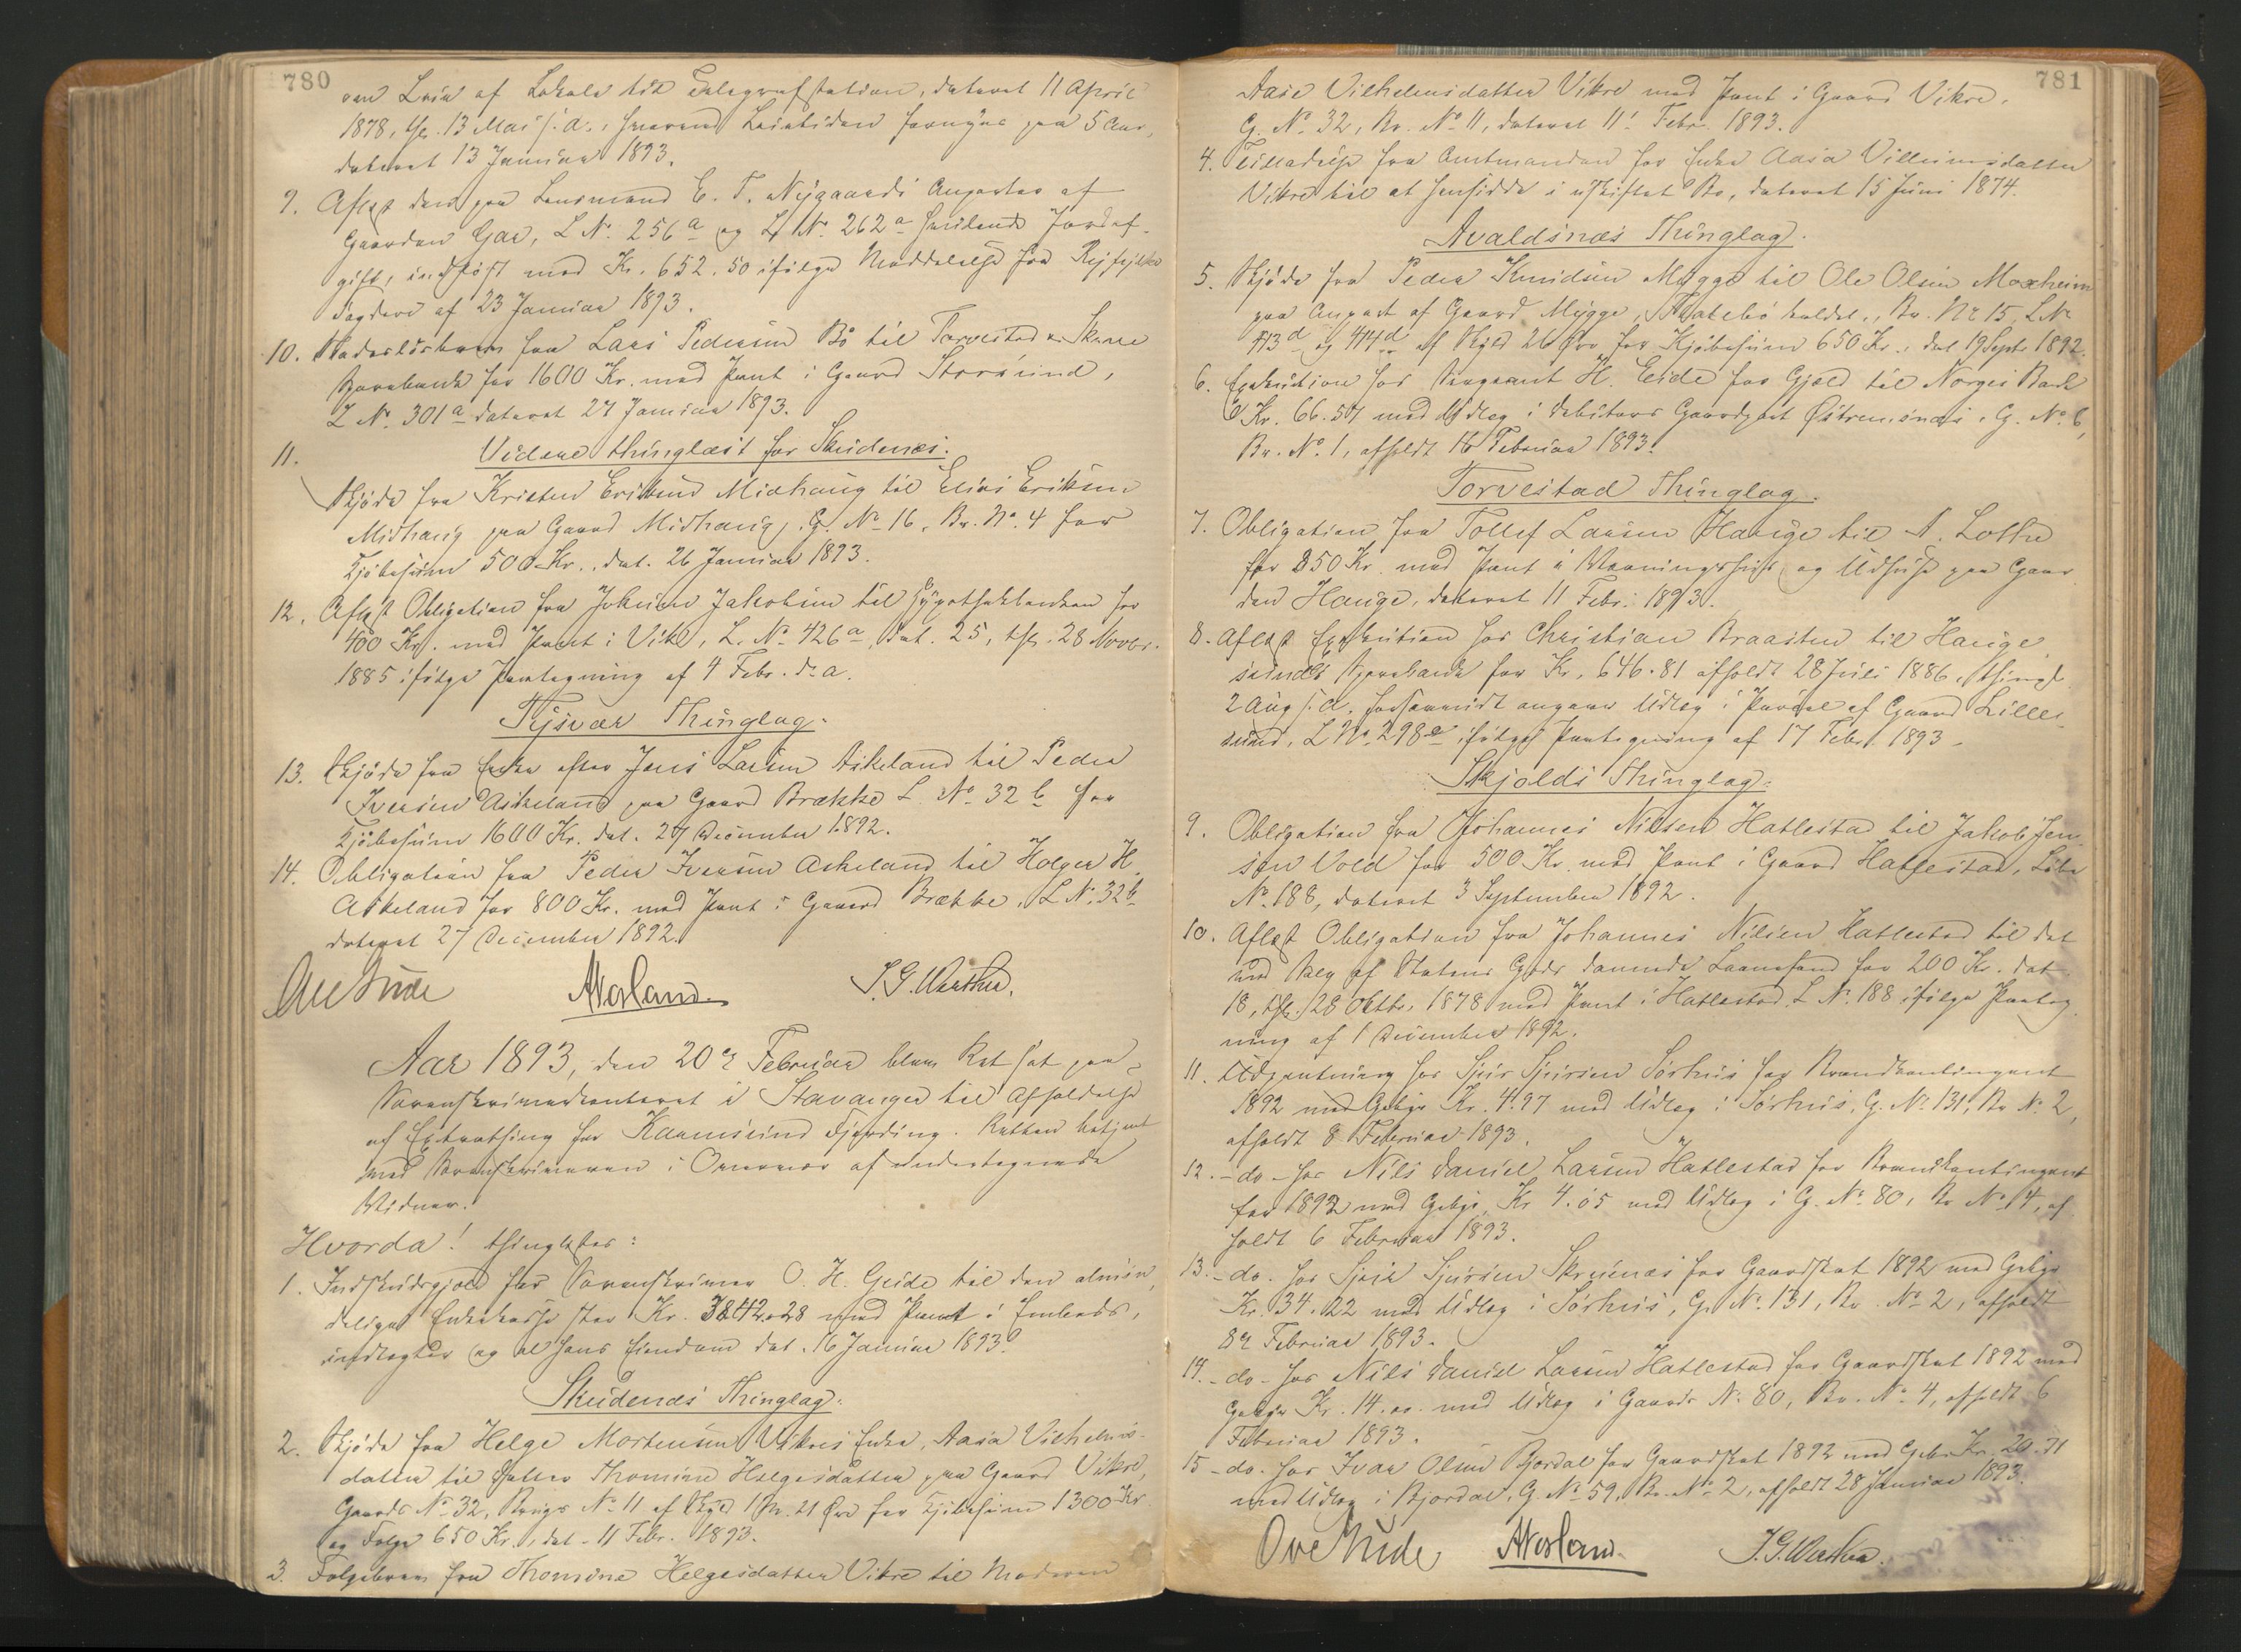 780
om Leie af Lokale til Telegrafstation, dateret 11 April
1878, thl. 13 Mai s. a., hvorved Leietiden fornyes paa 5 Aar,
dateret 13 Januar 1893.
9. Aflæst den paa Lensmand E. T. Nygaards Anparter af
Gaarden Gar, L. No. 256 a og L. No. 262 a heftende Jordaf-
gift, indløst med Kr. 652.50 ifølge Meddelelse fra Ryfylke
Fogderi af 23 Januar 1893.
10. Skadesløsbrev fra Lars Pedersen Bø til Torvestad & Skaare
Sparebank for 1600 Kr. med Pant i Gaard Storesund,
L No. 301 a dateret 27 Januar 1893.
11. Videre thinglæst for Skudenes.
Skjøde fra Kristen Eriksen Midhaug til Elias Eriksen
Midhaug paa Gaard Midhaug, G. No. 16, Br. No. 4 for
Kjøbesum 500 Kr., dat. 26 Januar 1893.
12. Aflæst Obligation fra Jakobsen til Hypothekbanken for
400 Kr. med Pant i Vike, L. No. 426 a, dat. 25, thl. 28 Novbr.
1885 ifølge Paategning af 4 Febr. d. a.
Tysvær Thinglag.
13. Skjøde fra Enke efter Jens Larsen Askeland til Peder
Iversen Askeland paa Gaard Brække L. No. 32 b for
Kjøbesum 1600 Kr. dat. 27 December 1892.
14. Obligation fra Peder Iversen Askeland til Holger H.
Askeland for 800 Kr. med Pant i Gaard Brække, L No. 32 b
dateret 27 December 1892.
J. G. Warthu.
Aar 1893, den 20de Februar blev Ret sat paa
Sorenskriverkontoret i Stavanger til Afholdelse
af Extrathing for Karmsund Fjerding. Retten betjent
med Sorenskriveren i Overvær af undertegnede
Vidner.
Hvorda! thinglæstes:
1. Indskudsgjæld fra Sorenskriver O. H. Geide til den almin-
delige Enkekasse stor Kr. 3842.28 med Pant i Embeds-
indtægter og al hans Eiendom dat. 16 Januar 1893.
Skudenes Thinglag.
2. Skjøde fra Helge Mortensen Vikres Enke, Aasa Vilhelms-
datter til Datter Thomine Helgesdatter paa Gaard Vikre,
Gaards No. 32, Brugs No. 11 af Skyld 1 M. 21 Øre for Kjøbesum 1300 Kr.
og Folge 650 Kr., dat. 11 Febr. 1893.
3. Folgebrev fra Thomine Helgesdatter Vikre til Moderen
781
Aase Vilhelmsdatter Vikre med Pant i Gaard Vikre,
G. No. 32, Br. No. 11, dateret 11. Febr. 1893.
4. Tilladelse fra Amtmanden for Enke Aasa Villumsdatter
Vikre til at hensidde i uskiftet Bo, dateret 15 Juni 1874.
Avaldsnæs Thinglag.
5. Skjøde fra Peder Knudsen Mygge til Ole Olsen Moxheim
paa Anpart af Gaard Mygge, kaldet, Br. No. 15, L No
413 d og 414 d af Skyld 26 Øre for Kjøbesum 650 Kr., dat. 19 Septr 1892.
6. Exekution hos Sergeant H. Eide for Gjæld til Norges Bank
Kr. 66.57 med Udlæg i Debitors Gaardpart Østremsnæs, G. No. 6,
Br. No. 1, afholdt 16 Februar 1893.
Torvestad Thinglag.
7. Obligation fra Tollef Larsen Hauge til A. Lothe
for 850 Kr. med Pant i Vaaningshus og Udhuse paa Gaar-
den Hauge, dateret 11 Febr. 1893.
8. Aflæst Exekution hos Christian Braasten til Hauge-
sunds Sparebank for Kr. 646.81 afholdt 28 Juli 1886, thingl.
2 Aug s. a. forsaavidt angaar Udlæg i Parcel af Gaard Lille-
sund, L No. 298 e ifølge Paategning af 17 Febr. 1893.
Skjolds Thinglag.
9. Obligation fra Johannes Nilsen Hatlestad til Jakob Jen-
sen Vold for 500 Kr. med Pant i Gaard Hatlestad, Løbe
No. 188, dateret 3 September 1892.
10. Aflæst Obligation fra Johannes Nilsen Hatlestad til det
ved Salg af Statens Gods dannede Laanefond for 200 Kr. dat.
18, thl. 28 Oktbr. 1878 med Pant i Hatlestad L No. 188 ifølge Paateg-
ning af 1 December 1892.
11. Udpantning hos Sjur Sjursen Sørhus for Brandkontingent
1892 med Gebyr Kr. 4.97 med Udlæg i Sørhus, G. No. 131, Br No. 2,
afholdt 8 Februar 1893.
12. - do - hos Nils Daniel Larsen Hatlestad for Brandkontingent
for 1892 med Gebyr Kr 4.05 med Udlæg i G. No. 80, Br No. 4, af-
holdt 6 Februar 1893.
13. - do. hos Sjur Sjursen Skrusnæs for Gaardskat 1892 med Gebyr
Kr. 34.22 med Udlæg i Sørhus, G. No. 131, Br. No. 2, afholdt
8de Februar 1893.
14. - do - hos Nils Daniel Larsen Hatlestad for Gaardskat 1892 med
Gebyr Kr. 14. med Udlæg i Gaards No. 80, Br. No. 4, afholdt 6
Februar 1893.
15 - do. hos Ivar Olsen Bjordal for Gaardskat 1892 med Gebyr Kr. 20.71
med Udlæg i Bjordal, G. No. 59, Br. No. 2, afholdt 28 Januar 1893.
J. G. Warthu.